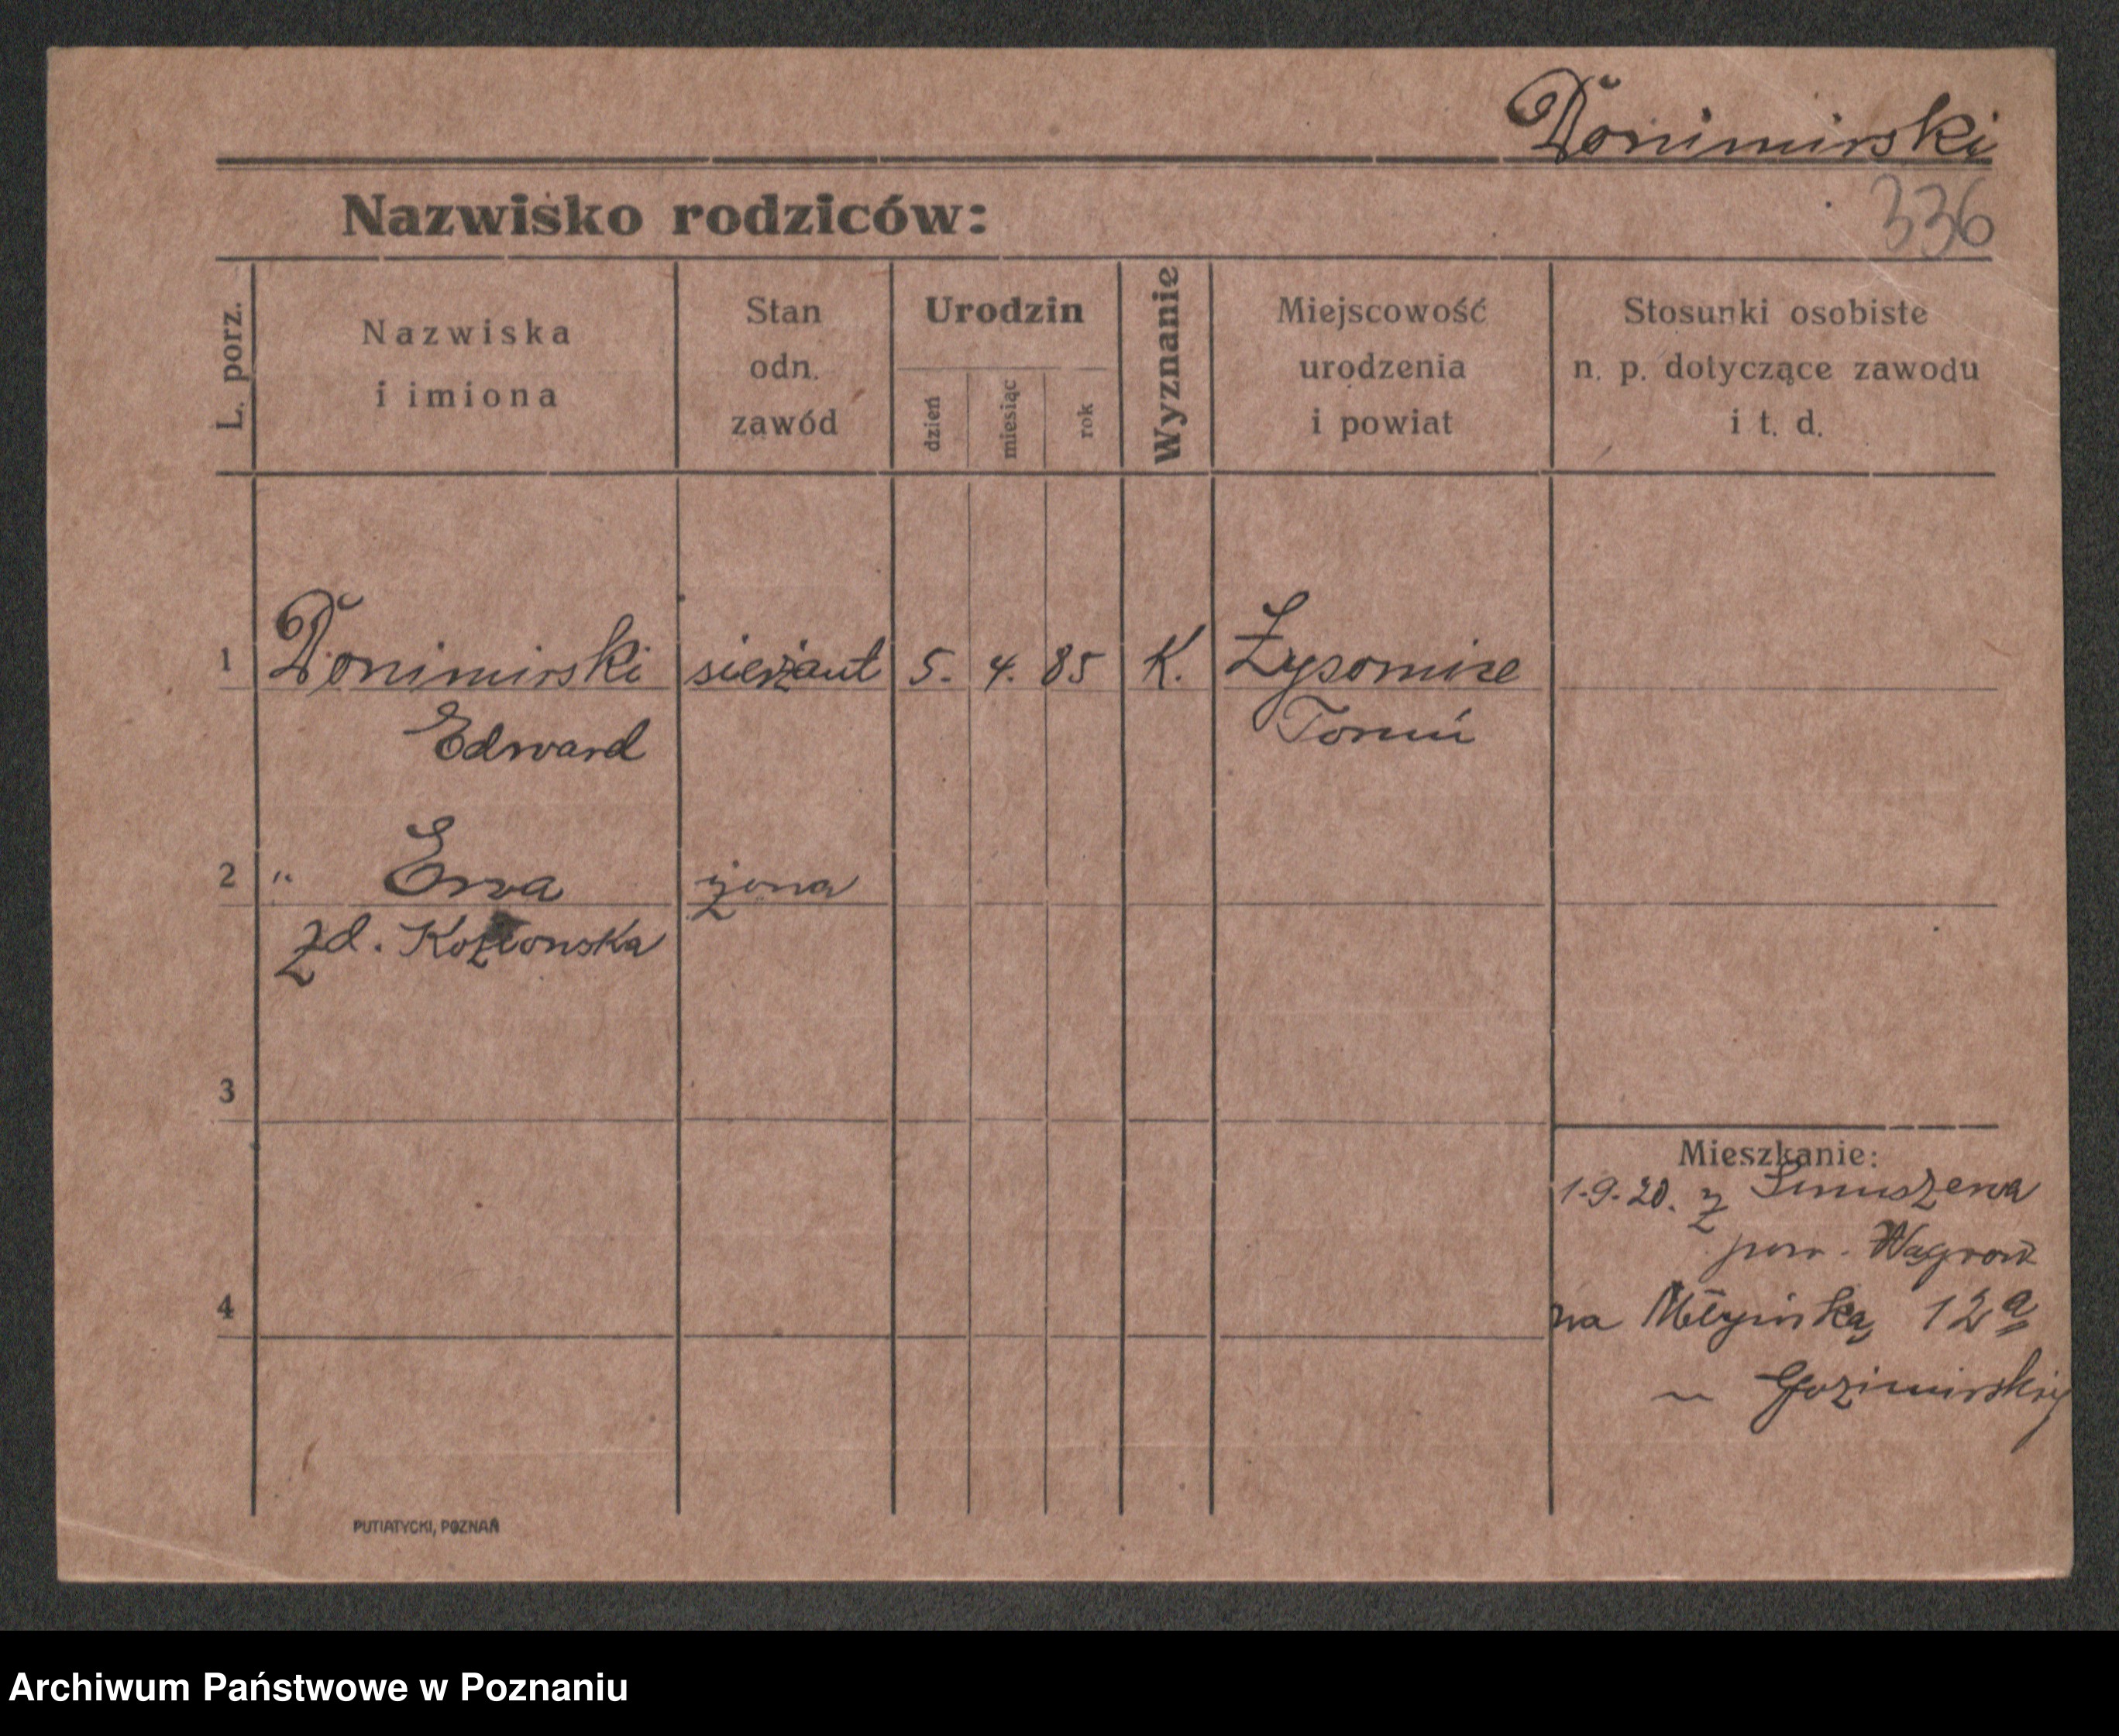 Donimirski
336
Nazwisko rodziców:
L. porz.
Nazwiska
i imiona
Stan
odn.
zawód
Urodzin
dzień
miesiąc
rok
Wyznanie
Miejscowość
urodzenia
i powiat
Stosunki osobiste
n. p. dotyczące zawodu
i t. d.
1 Donimirski sierżant 5. 4. 85 K. Łysomice
Edward Toruń
2 " Ewa żona
zd.
3
Mieszkanie:
1.9.20. z
pow. Wągrow
4
na Młyńską 12a
PUTIATYCKI, POZNAŃ
Archiwum Państwowe w Poznaniu